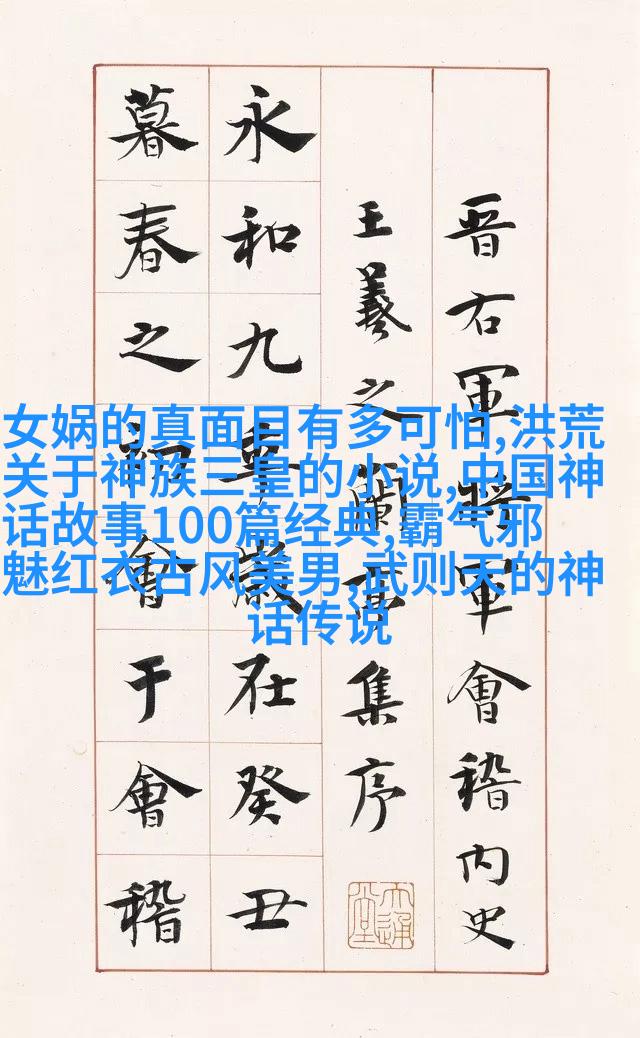 晋右軍將軍會稽内史
王羲之蘭亭集序
永和九年歲在癸丑
暮春之初會于會稽
女娲的真面目有多可怕,洪荒
关于神族三皇的小说,中国神
话故事100篇经典,霸气邪
魅红衣古风美男,武则天的神
话传说